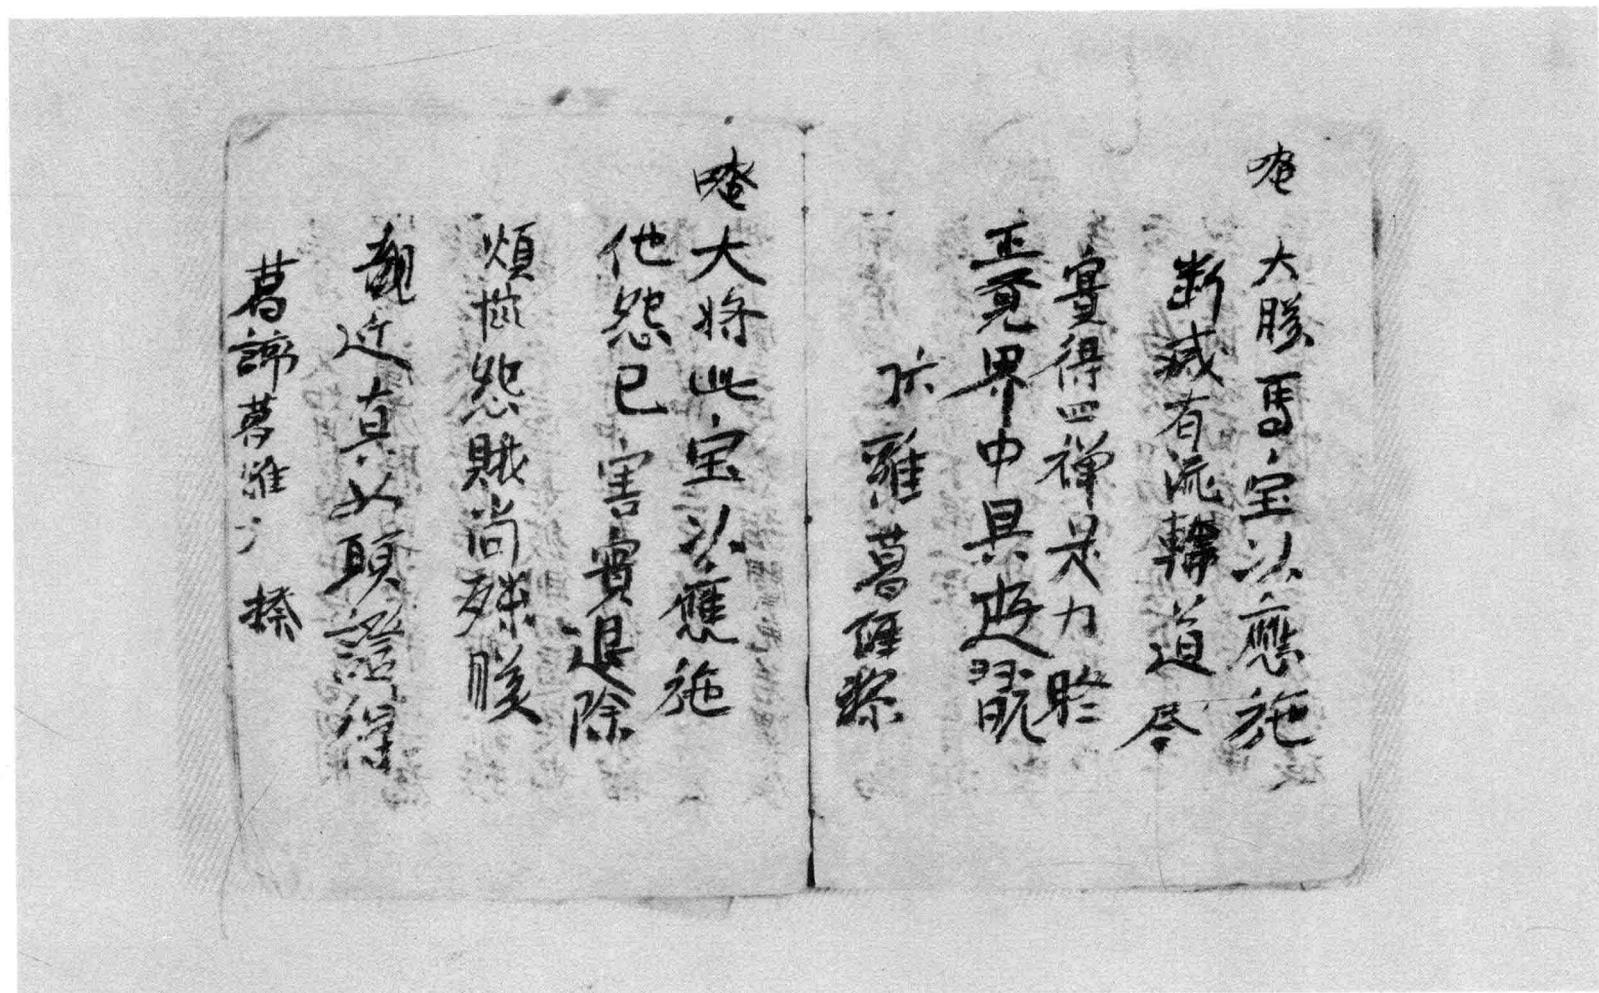 唵 大勝馬宝以應施
断滅有流轉道尽
實得四禅是力
正覓界中具遊戲
葛
唵大将此宝以應施
他怨已害實退除
煩惱怨賊尚殊勝
親近真如願證得
葛諦葛